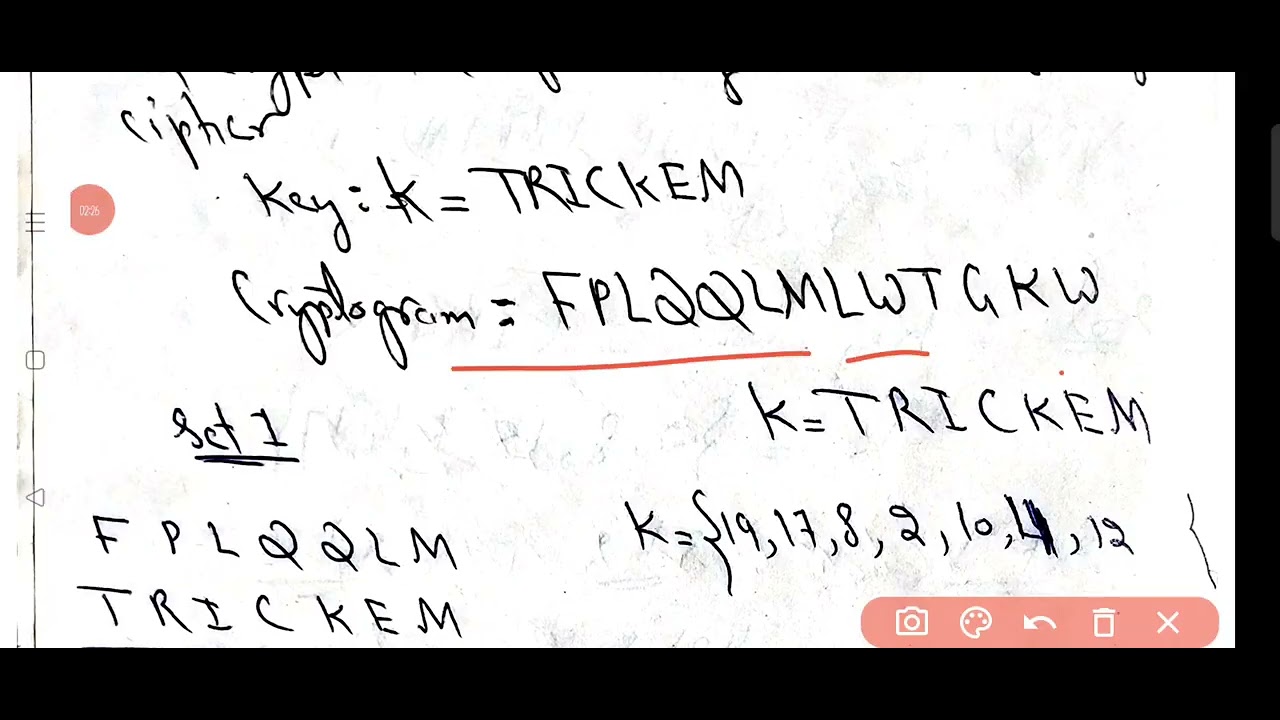 cipher
Key: k = TRICKEM
Cryptogram = FPLQQLMLWTGKW
Set 1
K = TRICKEM
F P L Q Q L M
K = {19, 17, 8, 2, 10, 4, 12
T R I C K E M
02:26